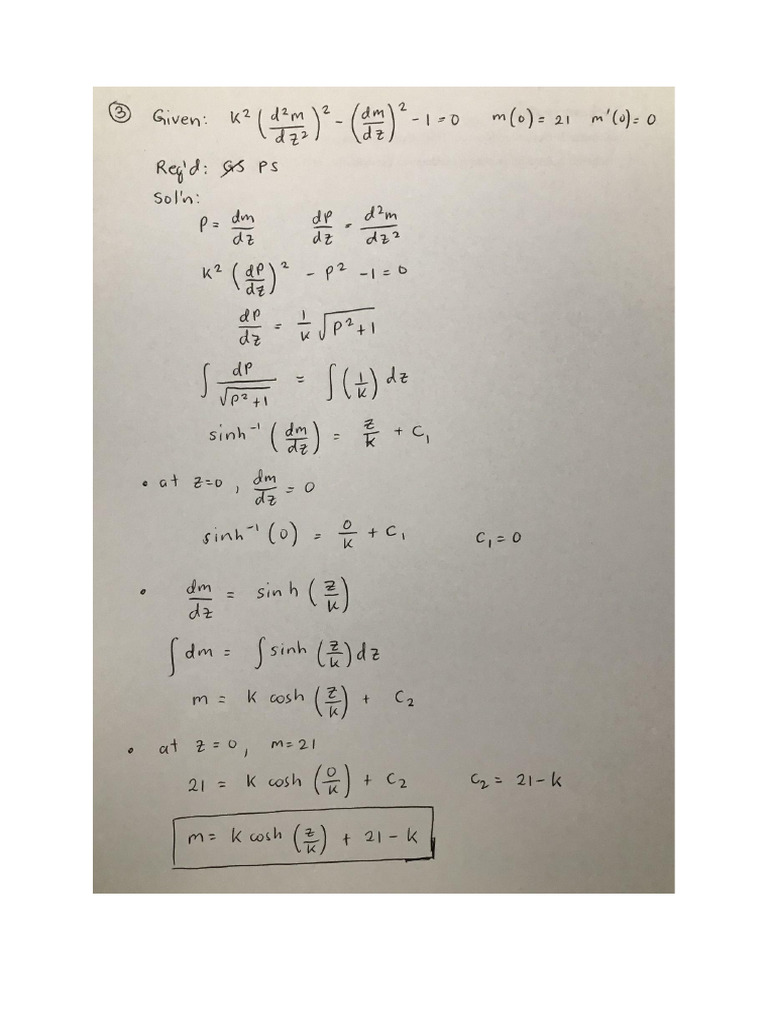 ③ Given: k² (d²m/dz²)² - (dm/dz)² - 1 = 0 m(0) = 21 m'(0) = 0
Req'd: GS PS
Sol'n:
P = dm/dz dP/dz = d²m/dz²
k² (dP/dz)² - P² - 1 = 0
dP/dz = 1/k √(P² + 1)
∫ dP/√(P² + 1) = ∫ (1/k) dz
sinh⁻¹ (dm/dz) = z/k + C₁
• at z=0, dm/dz = 0
sinh⁻¹ (0) = 0/k + C₁ C₁ = 0
• dm/dz = sinh (z/k)
∫ dm = ∫ sinh (z/k) dz
m = k cosh (z/k) + C₂
• at z = 0, m = 21
21 = k cosh (0/k) + C₂ C₂ = 21 - k
m = k cosh (z/k) + 21 - k